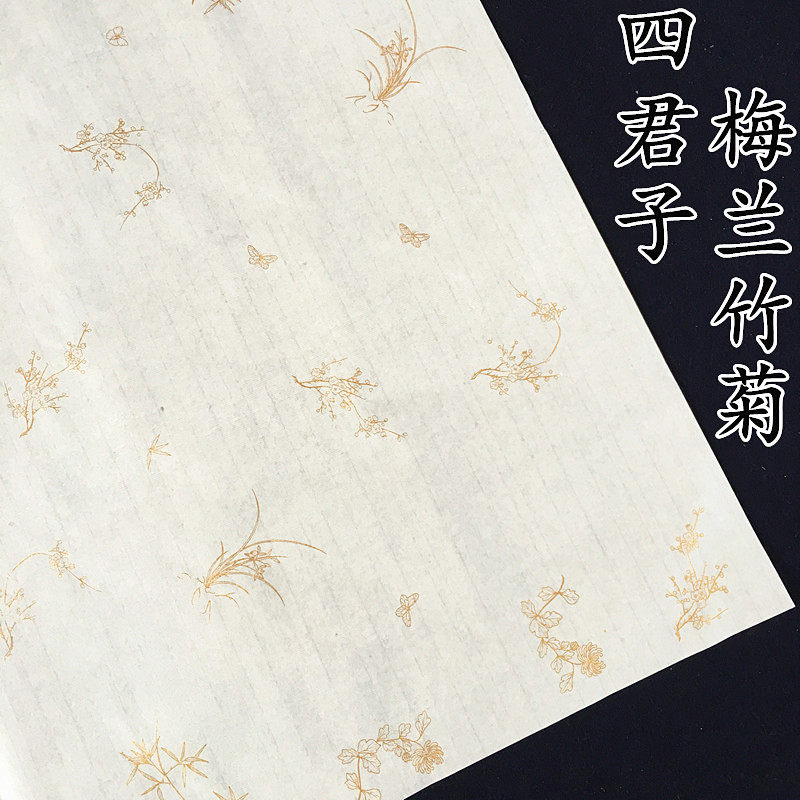 梅兰竹菊
四君子